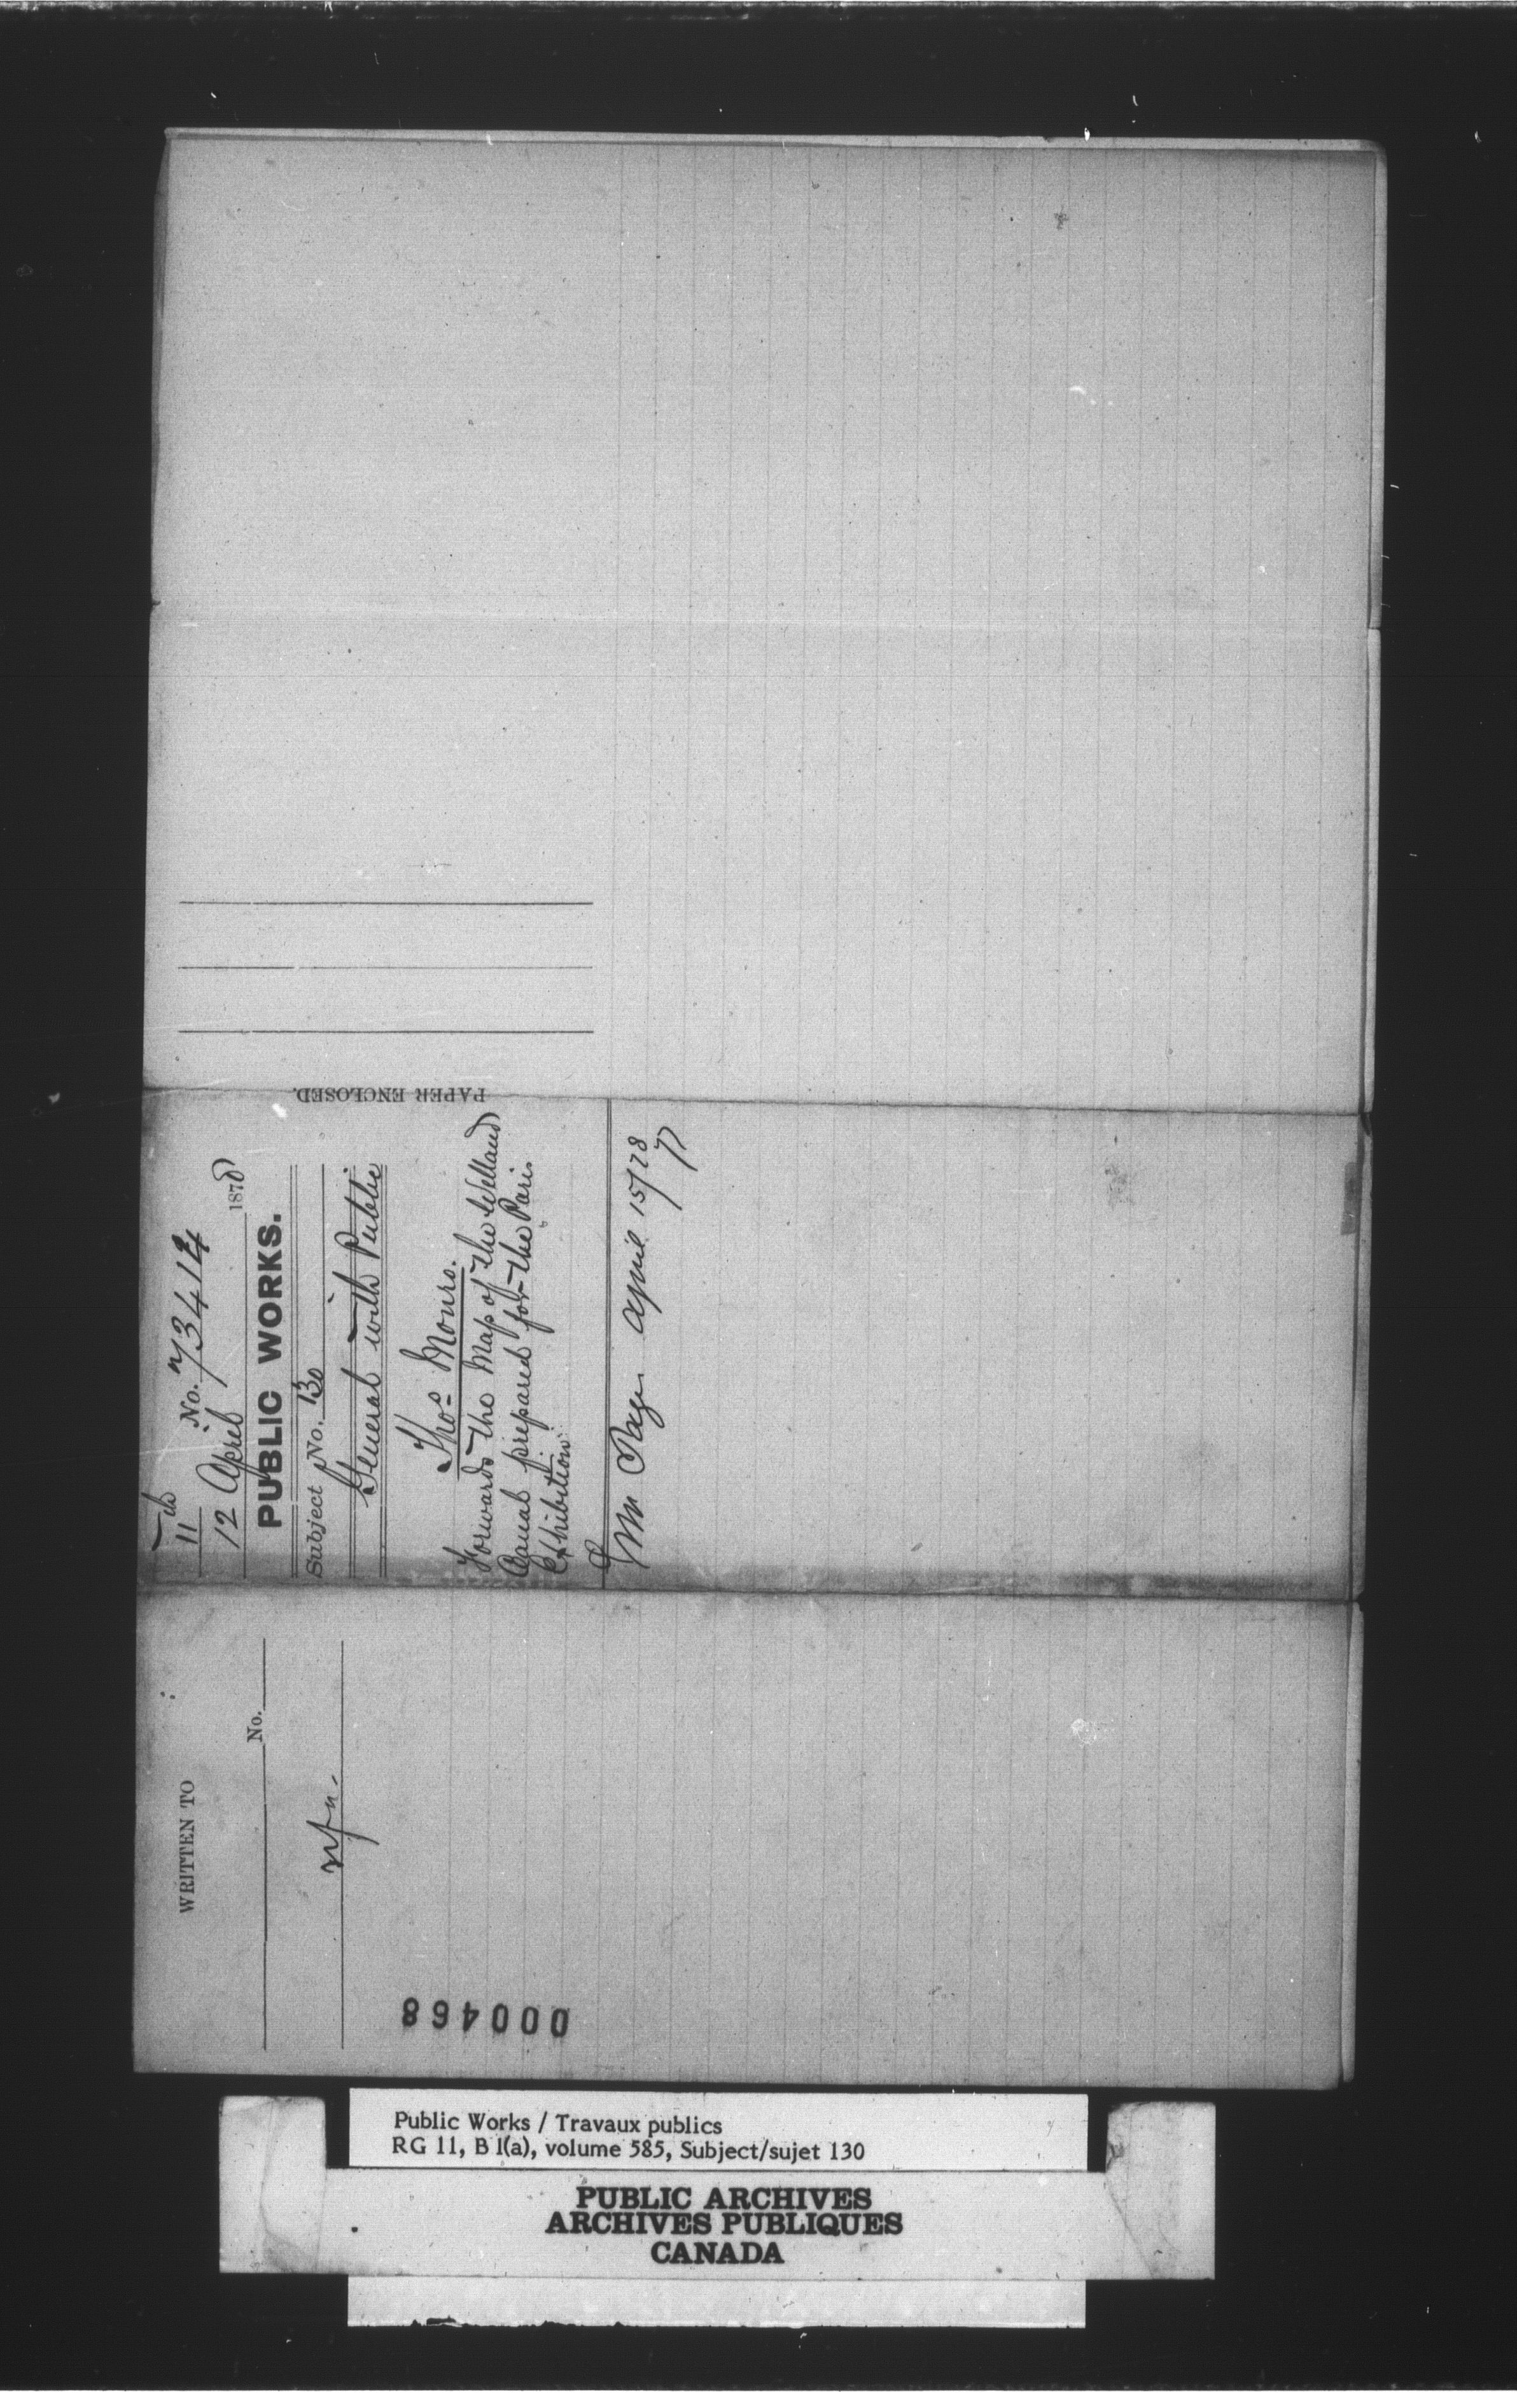 PAPER ENCLOSED.
11th
No. 73414
12 April 1878
PUBLIC WORKS.
Subject No. 130
General with Public
Thos Monro.
Forwards the Map of the Welland
Canal prepared for the Paris
Exhibition
Mr Page April 15/78
WRITTEN TO
No.
000468
Public Works / Travaux publics
RG 11, B 1(a), volume 585, Subject/sujet 130
PUBLIC ARCHIVES
ARCHIVES PUBLIQUES
CANADA